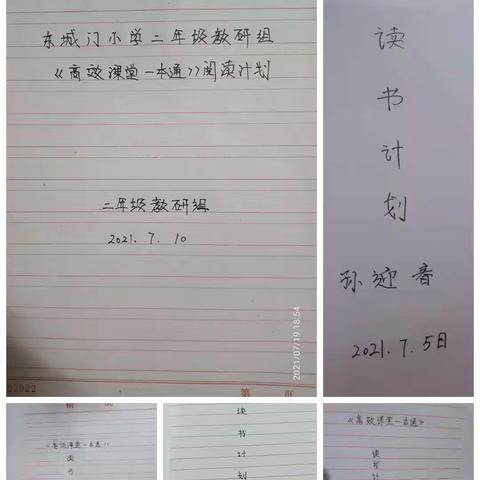 东城门小学二年级教研组
《高效课堂一本通》阅读计划
二年级教研组
2021.7.10
2021/07/19 18:54
第 页
读
书
计
划
孙迎春
2021.7.5日
《高效课堂一本通》
读
书
读
书
计
划
《高效课堂一本通》
读
书
计